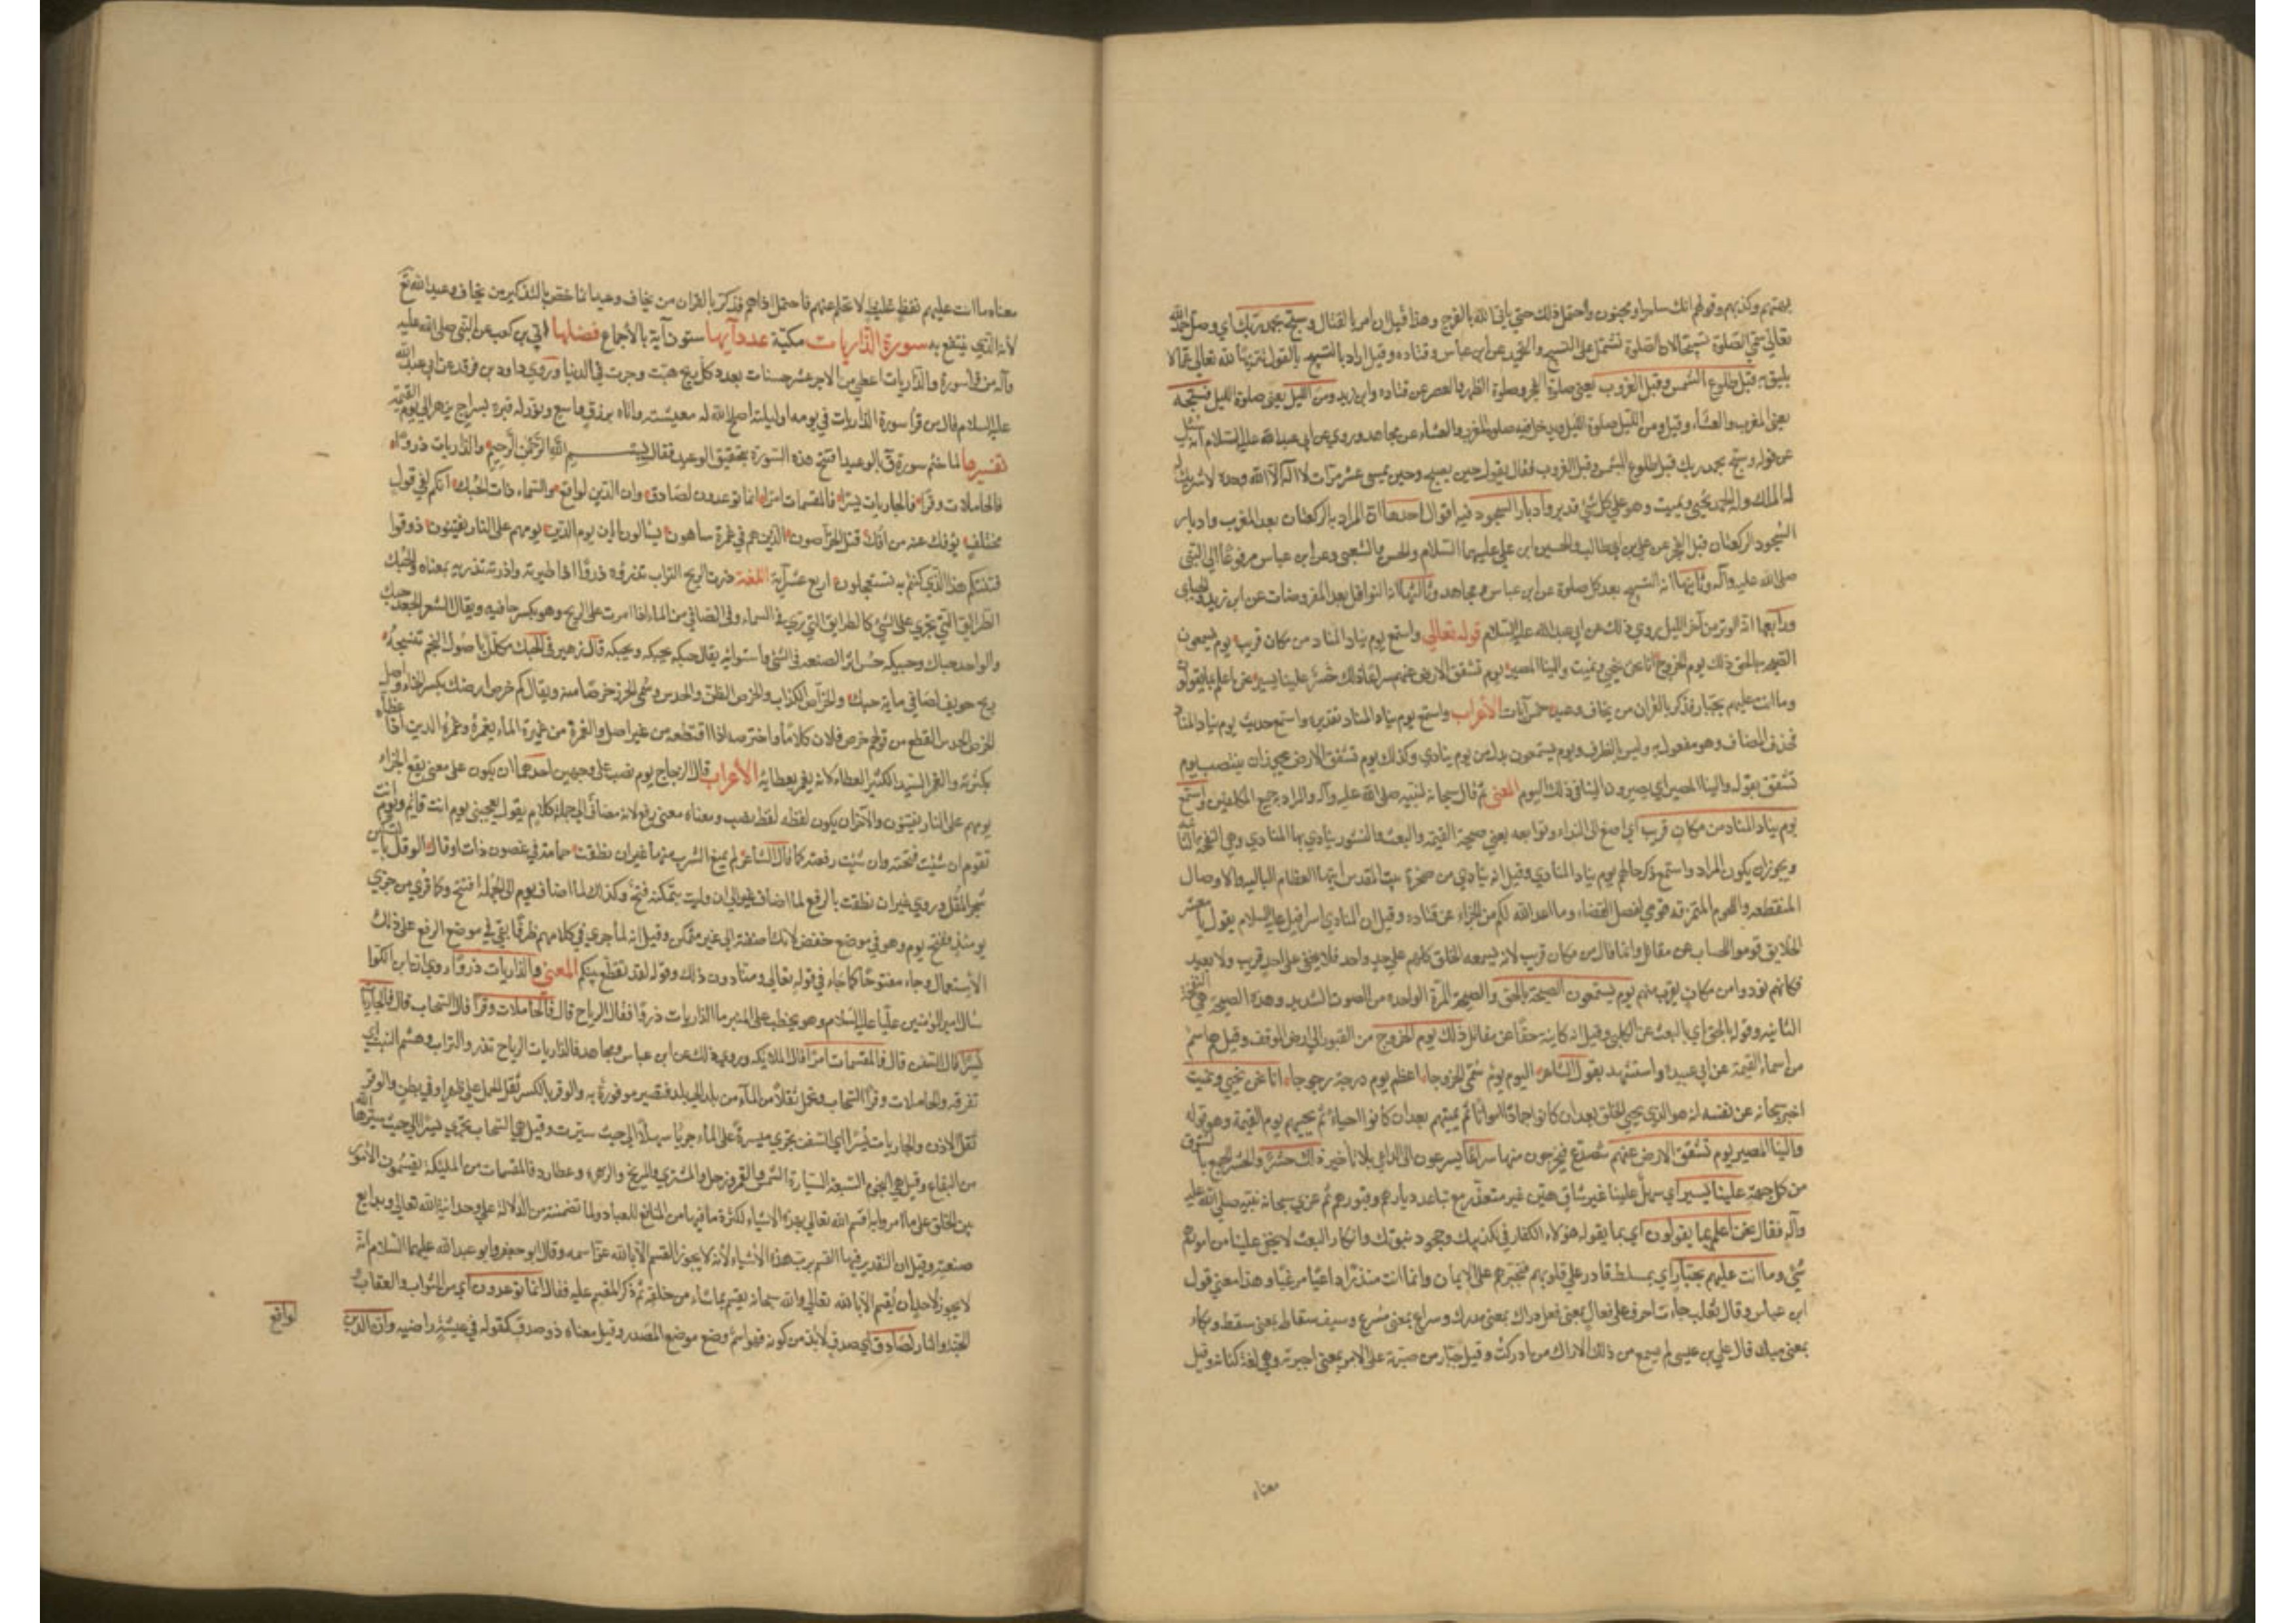 بهتهم وكذبهم وقولهم انك ساحر او مجنون واحتمل ذلك حتى ياتي الله بالفرج وهذا قبل ان امر بالقتال وسبح بحمد ربك اي وصل احمد الله
تعالى سمى الصلوة تسبيحا لان الصلوة تشتمل على التسبيح والتحميد عن ابن عباس وقتاده وقيل اراد به التسبيح بالقول تنزيها لله تعالى عما لا
يليق به قبل طلوع الشمس وقبل الغروب يعني صلوة الفجر وصلوة الظهر والعصر عن قتاده وابن زيد ومن الليل يعني صلوة الليل فسبحه
يعني المغرب والعشاء وقيل ومن الليل صلوة الليل ويدخل فيه صلوة المغرب والعشاء عن مجاهد وروي عن ابي عبد الله عليه السلام انه سئل
عن قوله وسبح بحمد ربك قبل طلوع الشمس وقبل الغروب فقال يقول حين يصبح وحين يمسي عشر مرات لا اله الا الله وحده لا شريك له
له الملك وله الحمد يحيي ويميت وهو على كل شيء قدير وادبار السجود فيه اقوال احدها ان المراد به الركعتان بعد المغرب وادبار
السجود الركعتان قبل الفجر عن علي بن ابي طالب والحسن ابن علي عليهما السلام والحسن والشعبي وعن ابن عباس مرفوعا الى النبي
صلى الله عليه وآله وثانيها انه التسبيح بعد كل صلوة عن ابن عباس ومجاهد وثالثها انه النوافل بعد المفروضات عن ابن زيد والجبائي
ورابعها انه الوتر من آخر الليل روي ذلك عن ابي عبد الله عليه السلام قوله تعالى واستمع يوم يناد المناد من مكان قريب يوم يسمعون
الصيحة بالحق ذلك يوم الخروج انا نحن نحيي ونميت والينا المصير يوم تشقق الارض عنهم سراعا ذلك حشر علينا يسير نحن اعلم بما يقولون
وما انت عليهم بجبار فذكر بالقرآن من يخاف وعيد خمس آيات الأعراب واستمع يوم يناد المناد تقديره واستمع حديث يوم يناد المناد
فحذف المضاف وهو مفعول به وليس بالظرف ويوم يسمعون بدل من يوم ينادي وكذلك يوم تشقق الارض ويجوز ان ينتصب يوم
تشقق بقوله والينا المصير اي يصيرون الينا في ذلك اليوم المعنى ثم قال سبحانه لنبيه صلى الله عليه وآله والمراد به جميع المكلفين واستمع
يوم يناد المناد من مكان قريب اي اصغ الى النداء وتوقعه يعني صيحة القيمة والبعث والنشور ينادي بها المنادي وهي النفخة الثانية
ويجوز ان يكون المراد واستمع ذكر حالهم يوم يناد المنادي وقيل انه ينادي من صخرة بيت المقدس ايتها العظام الباليه والاوصال
المنقطعه واللحوم المتمزقه قومي لفصل القضاء وما اعد الله لكم من الجزاء عن قتاده وقيل ان المنادي اسرافيل عليه السلام يقول يا معشر
الخلايق قوموا للحساب عن مقاتل وانما قال من مكان قريب لانه يسمعه الخلق كلهم على حد واحد فلا يخفى على احد قريب ولا بعيد
فكانهم نودوا من مكان يقرب منهم يوم يسمعون الصيحة بالحق والصيحة المرة الواحده من الصوت الشديد وهذه الصيحة هي النفخة
الثانيه وقوله بالحق اي بالبعث عن الكلبي وقيل انه كاينة حقا عن مقاتل ذلك يوم الخروج من القبور الى ارض الموقف وقيل هو اسم
من اسماء القيمة عن ابي عبيده واستشهد بقول الشاعر اليوم يوم سمي الخروجا اعظم يوم درجة رجوجا انا نحن نحيي ونميت
اخبر سبحانه عن نفسه انه هو الذي يحيي الخلق بعد ان كانوا جمادا امواتا ثم يميتهم بعد ان كانوا احياء ثم يحييهم يوم القيمة وهو قوله
والينا المصير يوم تشقق الارض عنهم تتصدع فيخرجون منها سراعا يسرعون الى الداعي بلا تاخير ذلك حشر والحشر الجمع بالسوق
من كل جهة علينا يسير اي سهل علينا غير شاق هين غير متعذر مع تباعد ديارهم وقبورهم ثم عزى سبحانه نبيه صلى الله عليه
وآله فقال نحن اعلم بما يقولون اي بما يقوله هؤلاء الكفار في تكذيبك وجحود نبوتك وانكار البعث لا يخفى علينا من امرهم
شيء وما انت عليهم بجبار اي بمسلط قادر على قلوبهم فتجبرهم على الايمان وانما انت منذر داعيا مرغبا وهذا معنى قول
ابن عباس وقال ثعلب جاءت احرف على فعال بمعنى مفعل دراك بمعنى مدرك وسراع بمعنى مسرع وسيف سقاط بمعنى مسقط وبكاء
بمعنى مبك قال علي بن عيسى لم يسمع من ذلك الا دراك من ادركت وقيل جبار من جبرته على الامر بمعنى اجبرته وهي لغة كنانة وقيل
معناه
معناه ما انت عليهم بفظ غليظ لا تحلم عنهم فاحتمل اذاهم فذكر بالقرآن من يخاف وعيد انما خص بالتذكير من يخاف وعيد الله تع
لانه الذي ينتفع به سورة الذاريات مكية عدد آيها ستون آية بالاجماع فضلها ابي بن كعب عن النبي صلى الله عليه
وآله من قرأ سورة والذاريات اعطي من الاجر عشر حسنات بعدد كل ريح هبت وجرت في الدنيا وروى داود بن فرقد عن ابي عبد الله
عليه السلام قال من قرأ سورة الذاريات في يومه او ليلته اصلح الله له معيشته واتاه برزق واسع ونور له قبره بسراج يزهر الى يوم القيمة
تفسيرها لما ختم سورة ق بالوعيد افتتح هذه السورة بتحقيق الوعيد فقال بسم الله الرحمن الرحيم والذاريات ذروا
فالحاملات وقرا فالجاريات يسرا فالمقسمات امرا انما توعدون لصادق وان الدين لواقع والسماء ذات الحبك انكم لفي قول
مختلف يؤفك عنه من افك قتل الخراصون الذين هم في غمرة ساهون يسالون ايان يوم الدين يومهم على النار يفتنون ذوقوا
فتنتكم هذا الذي كنتم به تستعجلون اربع عشر آية اللغة ذرت الريح التراب تذروه ذروا اذا طيرته واذرته تذريه بمعناه والحبك
الطرائق التي تجري على الشيء كالطرائق التي ترى في السماء وفي الصافي من الماء اذا مرت عليه الريح وهو تكسر حافيه ويقال للشعر الجعد حبك
والواحد حباك وحبيكه حسن اثر الصنعه في الشيء واستوائه يقال حبكه يحبكه ويحبكه قال زهير في الحبك مكلل باصول النجم تنسجه
ريح خريف لضاحي مايه حبك والخراص الكذاب والخرص الظن والحدس وسمي الحزر خرصا منه ويقال كم خرص ارضك بكسر الخاء واصل
الخرص القطع من قولهم خرص فلان كلاما واخترصه اذا اقتطعه من غير اصل والغمرة من غمرة الماء يغمره وغمره الدين اذا غطاه
بكثرته والغمر السيد الكثير العطاء لانه يغمر بعطائه الأعراب قال الزجاج يوم نصب على وجهين احدهما ان يكون على معنى يقع الجزاء
يومهم على النار يفتنون والآخر ان يكون لفظه لفظ نصب ومعناه معنى رفع لانه مضاف الى جملة كلام يقول يعجبني يوم انت قائم ويوم انت
تقوم ان شئت فتحته وان شئت رفعته كما قال الشاعر لم يمنع الشرب منها غير ان نطقت حمامة في غصون ذات اوقال الوقل يابس
شجر المقل وروي غير ان نطقت بالرفع لما اضاف غير الى ان وليست بمتمكنه فتح وكذلك لما اضاف يوم الى الجملة افتتح وكما قرئ من خزي
يومئذ ففتح يوم وهو في موضع خفض لانك اضفته الى غير متمكن وقيل انه لما جرى في كلامهم ظرفا بقي في موضع الرفع على ذلك
الاستعمال وجاء مفتوحا كما جاء في قوله تعالى ومنا دون ذلك وقوله لقد تقطع بينكم المعنى والذاريات ذروا روي ان ابن الكوا
سال امير المؤمنين عليا عليه السلام وهو يخطب على المنبر ما الذاريات ذروا فقال الرياح قال فالحاملات وقرا قال السحاب قال فالجاريات
يسرا قال السفن قال فالمقسمات امرا قال الملائكه وروي ذلك عن ابن عباس ومجاهد فالذاريات الرياح تذرو التراب وهشيم النبت اي
تفرقه والحاملات وقرا السحاب وتحمل ثقلا من الماء من بلد الى بلد فتصير موقورة به والوقر بالكسر ثقل الحمل على ظهر او في بطن والوقر
ثقل الاذن والجاريات يسرا اي السفن تجري ميسرة على الماء جريا سهلا الى حيث سيرت وقيل هي السحاب تجري يسرا الى حيث سيرها الله
من البقاع وقيل هي النجوم السبعة السيارة الشمس والقمر وزحل والمشتري والمريخ والزهره وعطارد فالمقسمات من الملئكة يقسمون الامور
بين الخلق على ما امروا به اقسم الله تعالى بهذه الاشياء لكثرة ما فيها من المنافع للعباد ولما تضمنته من الدلالة على وحدانية الله تعالى وبدايع
صنعته وقيل ان التقدير فيها القسم برب هذه الاشياء لانه لا يجوز القسم الا بالله عز اسمه وقال ابو جعفر وابو عبد الله عليهما السلام انه
لا يجوز لاحد ان يقسم الا بالله تعالى والله سبحانه يقسم بما شاء من خلقه ثم ذكر المقسم عليه فقال انما توعدون اي من الثواب والعقاب
الجنة والنار لصادق اي صدق لابد من كونه فهو اسم وضع موضع المصدر وقيل معناه ذو صدق كقوله في عيشة راضيه وان الدين
لواقع